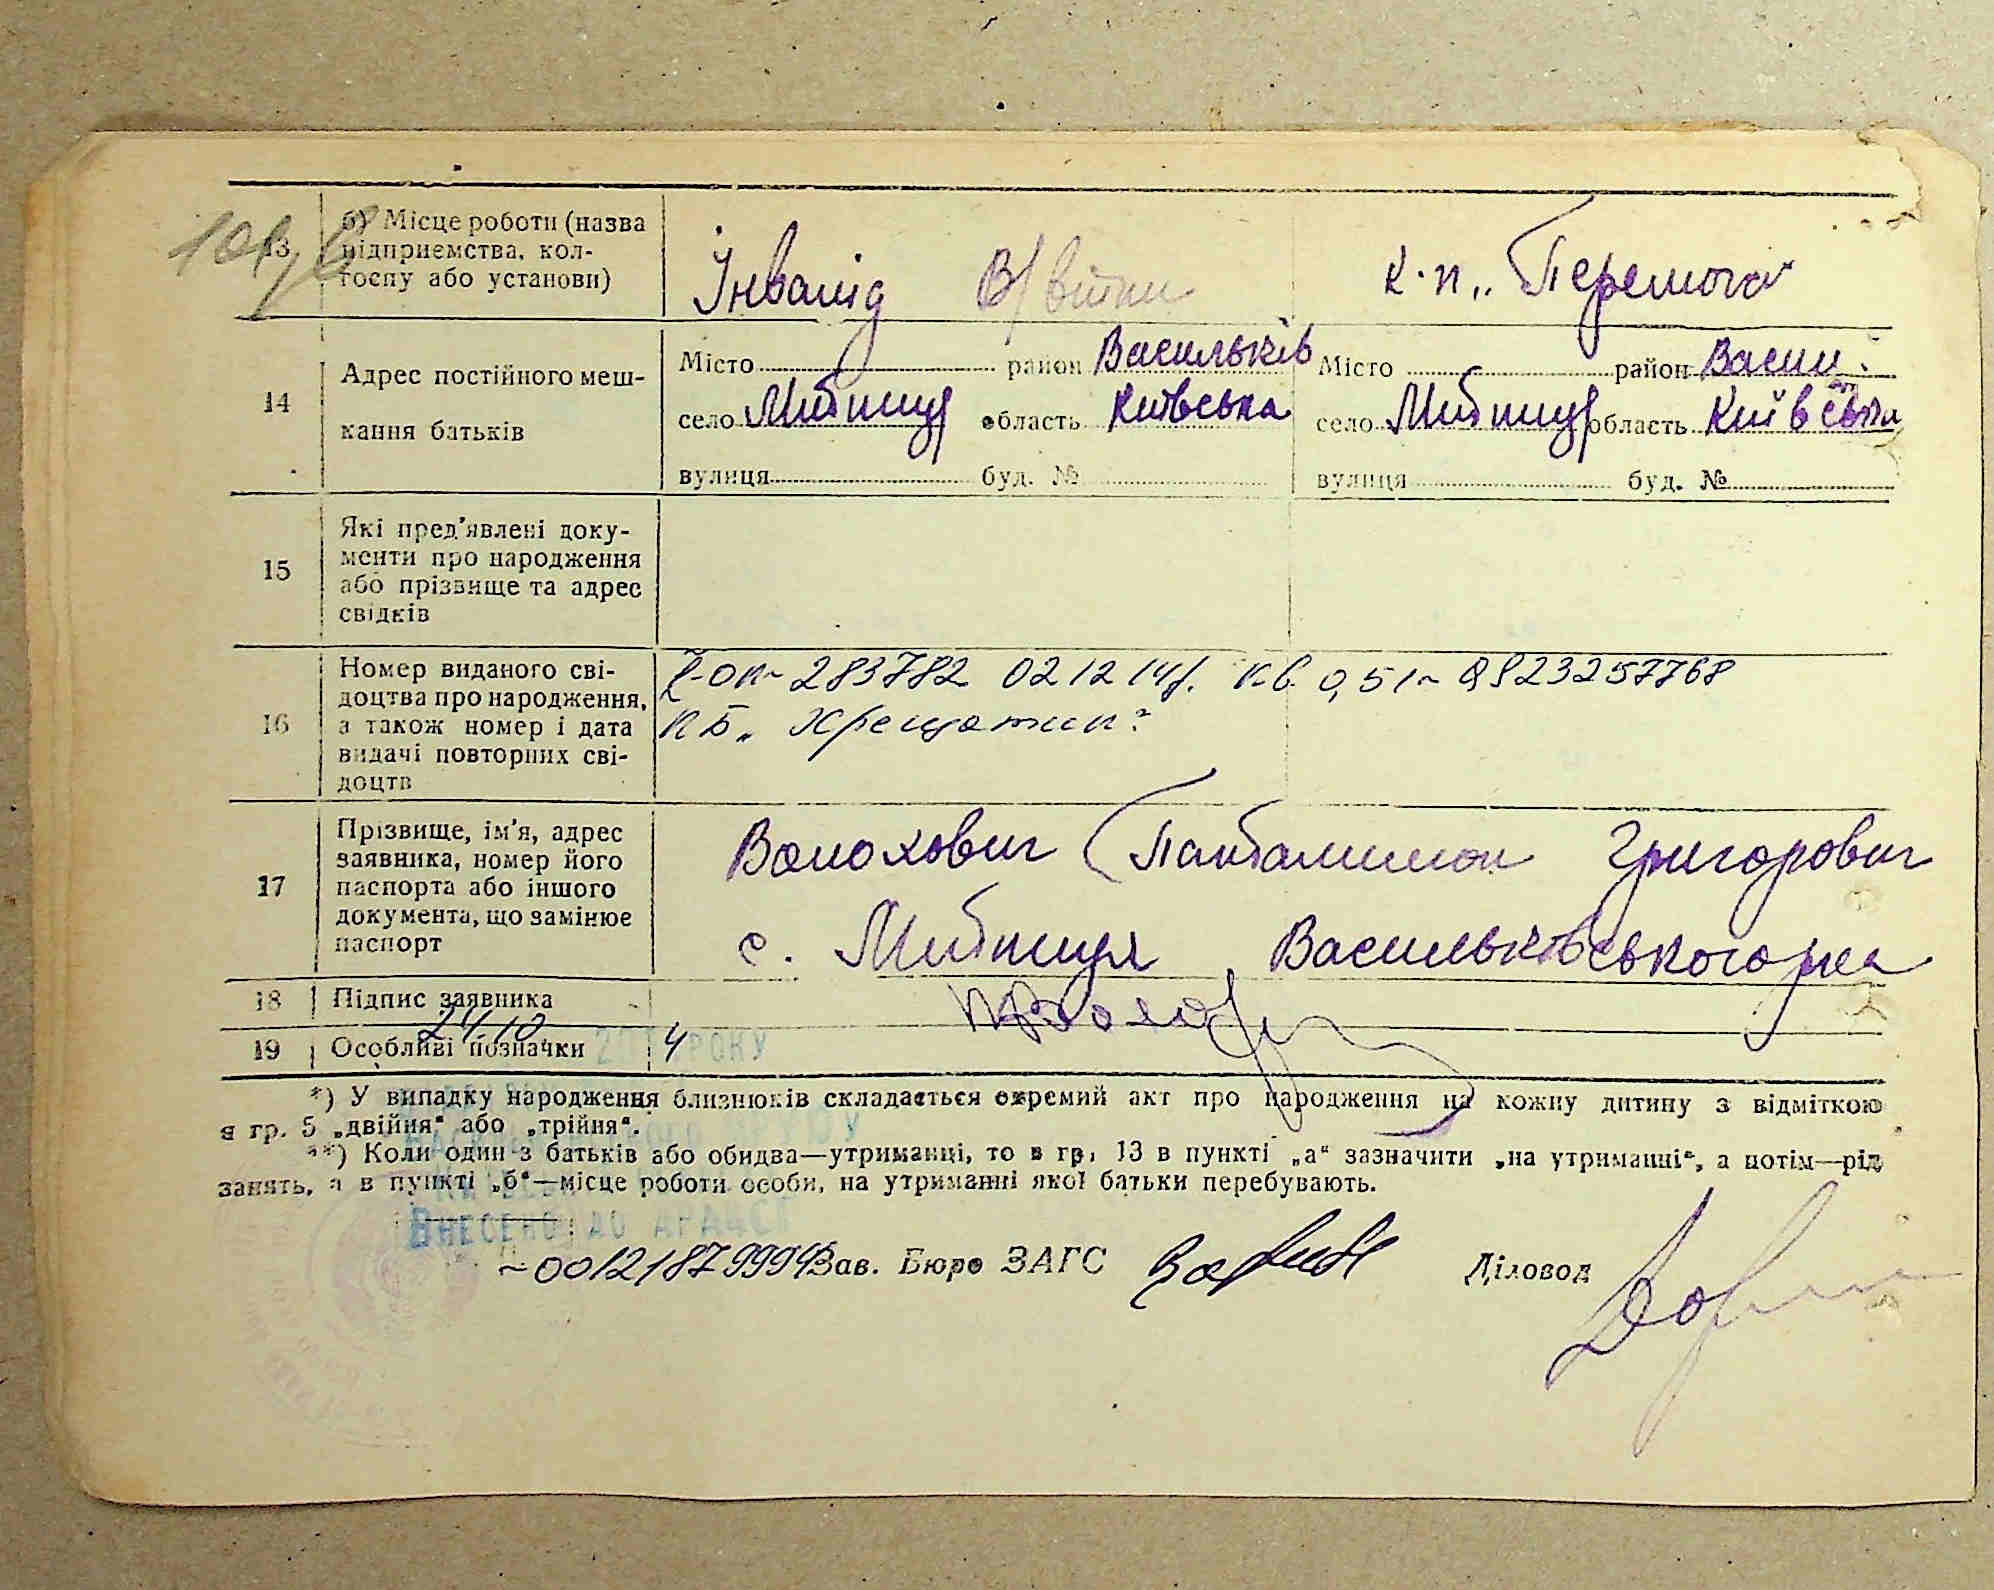 13 б) Місце роботи (назва
підприємства, кол-
госпу або установи)
Інвалід В/війни к-п „Перемога"
14 Адрес постійного меш-
кання батьків
Місто район Васильків
село Митниця область Київська
вулиця буд. №
Місто район Васил.
село Митниця область Київська
вулиця буд. №
15 Які пред'явлені доку-
менти про народження
або прізвище та адрес
свідків
16 Номер виданого сві-
доцтва про народження,
а також номер і дата
видачі повторних сві-
доцтв
283782 02 12 14р. кв. 0,51 9823257768
КБ „Хрещатик"
17 Прізвище, ім'я, адрес
заявника, номер його
паспорта або іншого
документа, що замінює
паспорт
Волохович Панталимон Григорович
с. Митниця Васильківського р-на
18 Підпис заявника
19 Особливі позначки
24.10 201 4 РОКУ
*) У випадку народження близнюків складається окремий акт про народження на кожну дитину з відміткою
в гр. 5 „двійня" або „трійня".
**) Коли один з батьків або обидва—утриманці, то в гр. 13 в пункті „а" зазначити „на утриманні", а потім—рід
занять, а в пункті „б"—місце роботи особи, на утриманні якої батьки перебувають.
ВНЕСЕНО ДО ДРАЦСГ
00121879994
Зав. Бюро ЗАГС Діловод